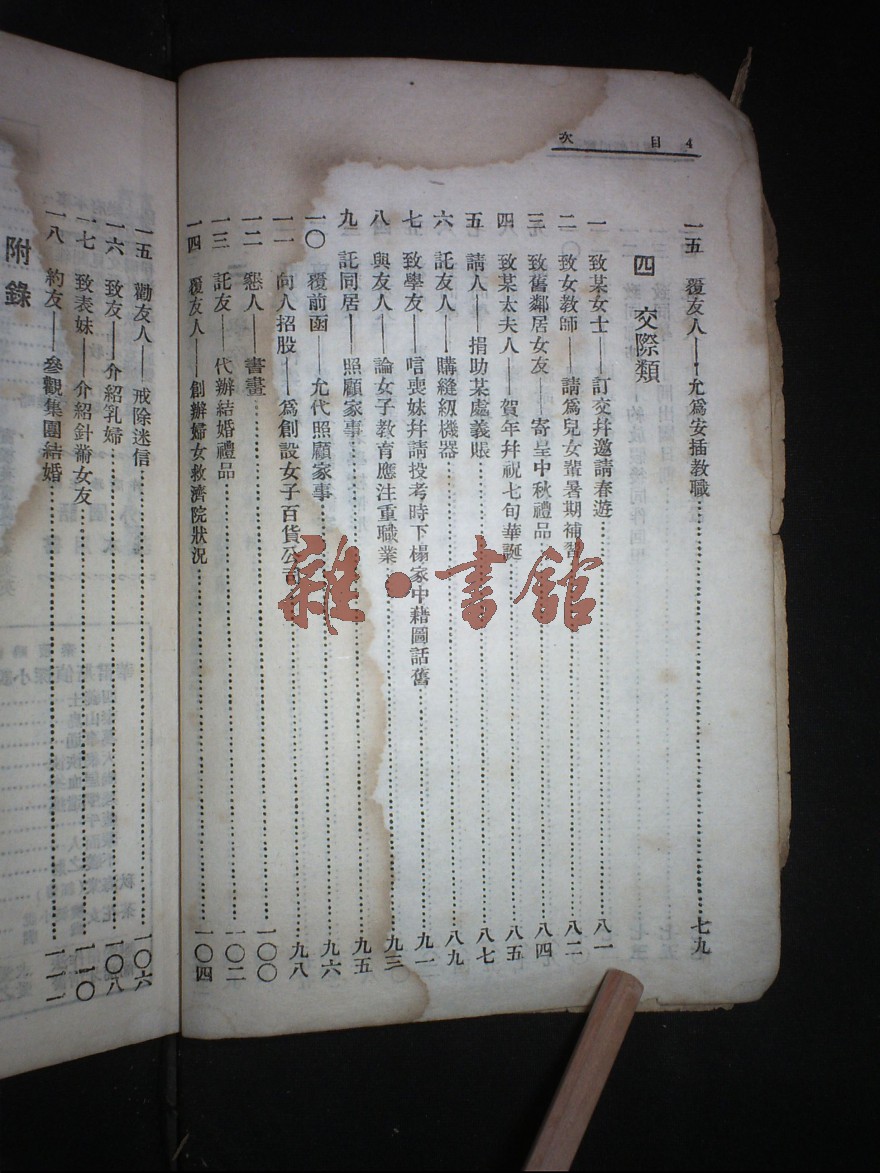 4 目次
一五 覆友人——允爲安插教職……七九
四 交際類
一 致某女士——訂交幷邀請春遊……八一
二 致女教師——請爲兒女輩暑期補習……八二
三 致舊鄰居女友——寄呈中秋禮品……八四
四 致某太夫人——賀年幷祝七旬華誕……八五
五 請人——捐助某處義賬……八七
六 託友人——購縫紉機器……八九
七 致學友——唁喪妹幷請投考時下榻家中藉圖話舊……九一
八 與友人——論女子教育應注重職業……九三
九 託同居——照顧家事……九五
一〇 覆前函——允代照顧家事……九六
一一 向人招股——爲創設女子百貨公司……九八
一二 懇人——書畫……一〇〇
一三 託友——代辦結婚禮品……一〇二
一四 覆友人——創辦婦女救濟院狀況……一〇四
一五 勸友人——戒除迷信……一〇六
一六 致友——介紹乳婦……一〇八
一七 致表妹——介紹針黹女友……一一〇
一八 約友——參觀集團結婚……一一一
附錄
雜·書館